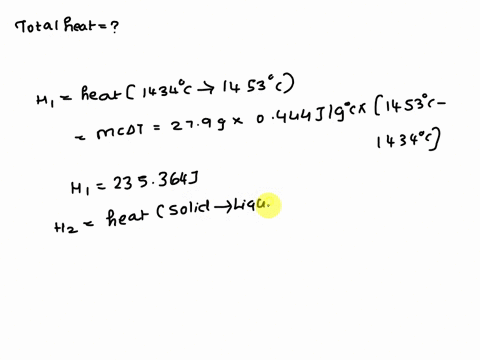 Total heat = ?
H₁ = heat (1434°c → 1453°c)
= mcΔT = 27.9g × 0.444J/g°c × (1453°c -
1434°c)
H₁ = 235.364J
H₂ = heat (solid → Liqu